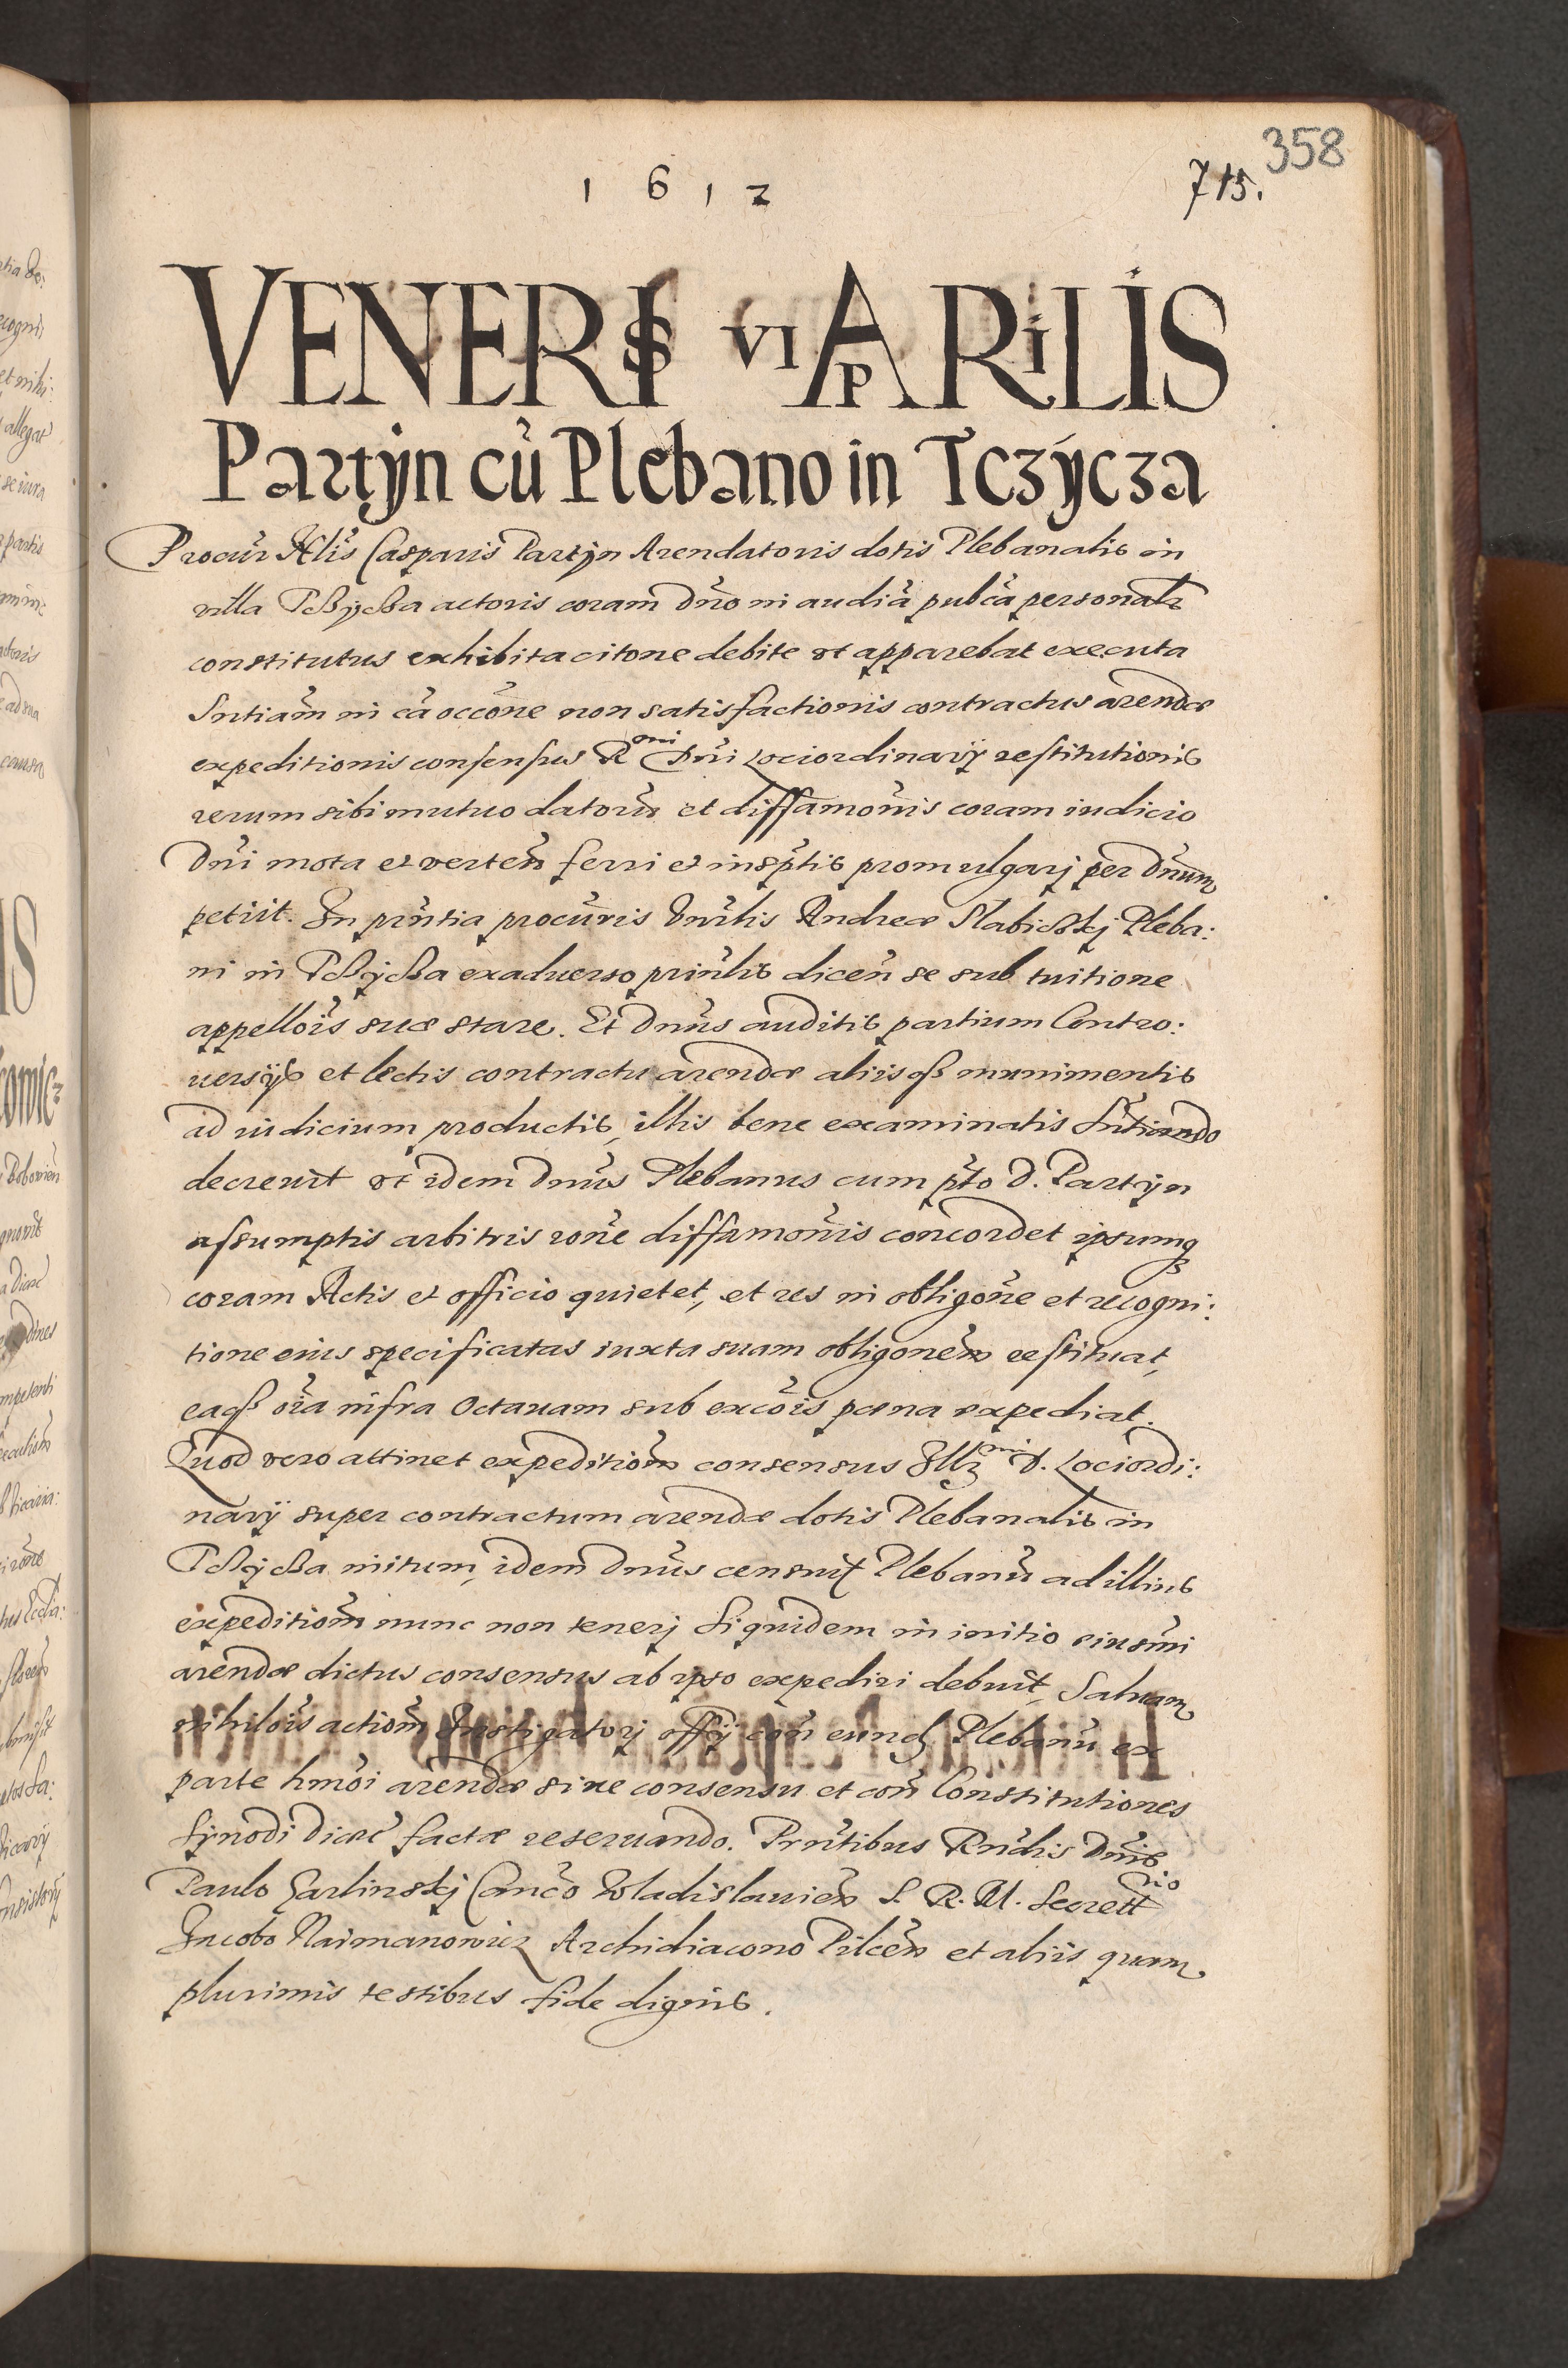 358
1612
715.
VENERIS VI APRILIS
Partÿn cũ Plebano in Tczÿcza
Procur̃ Nlis Casparis Partÿn Arendatoris dotis Plebanalis in
villa Tczÿcza actoris coram Dño in audiã pubcã personalr
constitutus exhibita citone debite vt apparebat executa
Sntiam̃ in cã occõne non satisfactionis contractus arendæ
expeditionis consensus Rmi Dñi Lociordinarÿ restitutionis
rerum sibi mutuo datorũ et diffamõnis coram iudicio
Dñi mota et verteñ ferri et in scptis promulgarj per Dnum
petiit. In pñtia procuris Vnlis Andreæ Slabic Pleba:
ni in Tczÿcza exaduerso prinlis diceñ se sub tuitione
appellõis suæ stare. Et Dnũs auditis partium Contro:
uersÿs et lectis contractu arendæ aliisq munimentis
ad iudicium productis, illis bene examinatis Sntiando
decreuit vt idem Dnũs Plebanus cum pto D. Partÿn
assumptis arbitris rone diffamõnis concordet ipsumq
coram Actis et officio quietet, et res in obligõne et recogni:
tione eius specificatas iuxta suam obligonem̃ restituat,
eaq oĩa infra Octauam sub excõis pœna expediat.
Quod vero attinet expeditiom̃ consensus Illmi D. Lociordi:
narÿ super contractum arendæ dotis Plebanalis in
Tczÿcza initum, idem Dnũs censuit Plebanũ ad illius
expeditiom̃ nunc non tenerj Siquidem in initio eiusmi
arendæ dictus consensus ab ipso expediri debuit, Saluam
nihilois actiom̃ Instigatorj offÿ coñ eund Plebanũ ex
parte hmõi arendæ sine consensu et coñ Constitutiones
Synodi Diæc factæ reseruando. Pñtibus Rndis Dnis
Paulo Sarlinskj Canco Wladislauieñ S. R. M. Secrettrio
Jacobo Naimanowicz Archidiacono Pilceñ et aliis quam
plurimis testibus fide dignis.